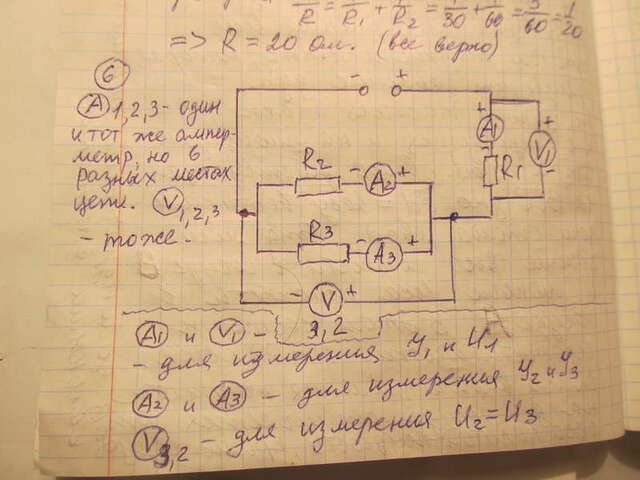 1/R = 1/R₁ + 1/R₂ = 1/30 + 1/60 = 3/60 = 1/20
=> R = 20 Ом. (все верно)
6
(A) 1,2,3 - один
и тот же ампер-
метр, но в
разных местах
цепи. (V) 1,2,3
- тоже.
- +
+ A1 - R1
+ V1 -
R2 - A2 +
R3 - A3 +
- V +
3,2
(A1) и (V1) -
- для измерения У₁ и U1
(A2) и (A3) - для измерения У₂ и У₃
(V) 3,2 - для измерения U₂ = U₃